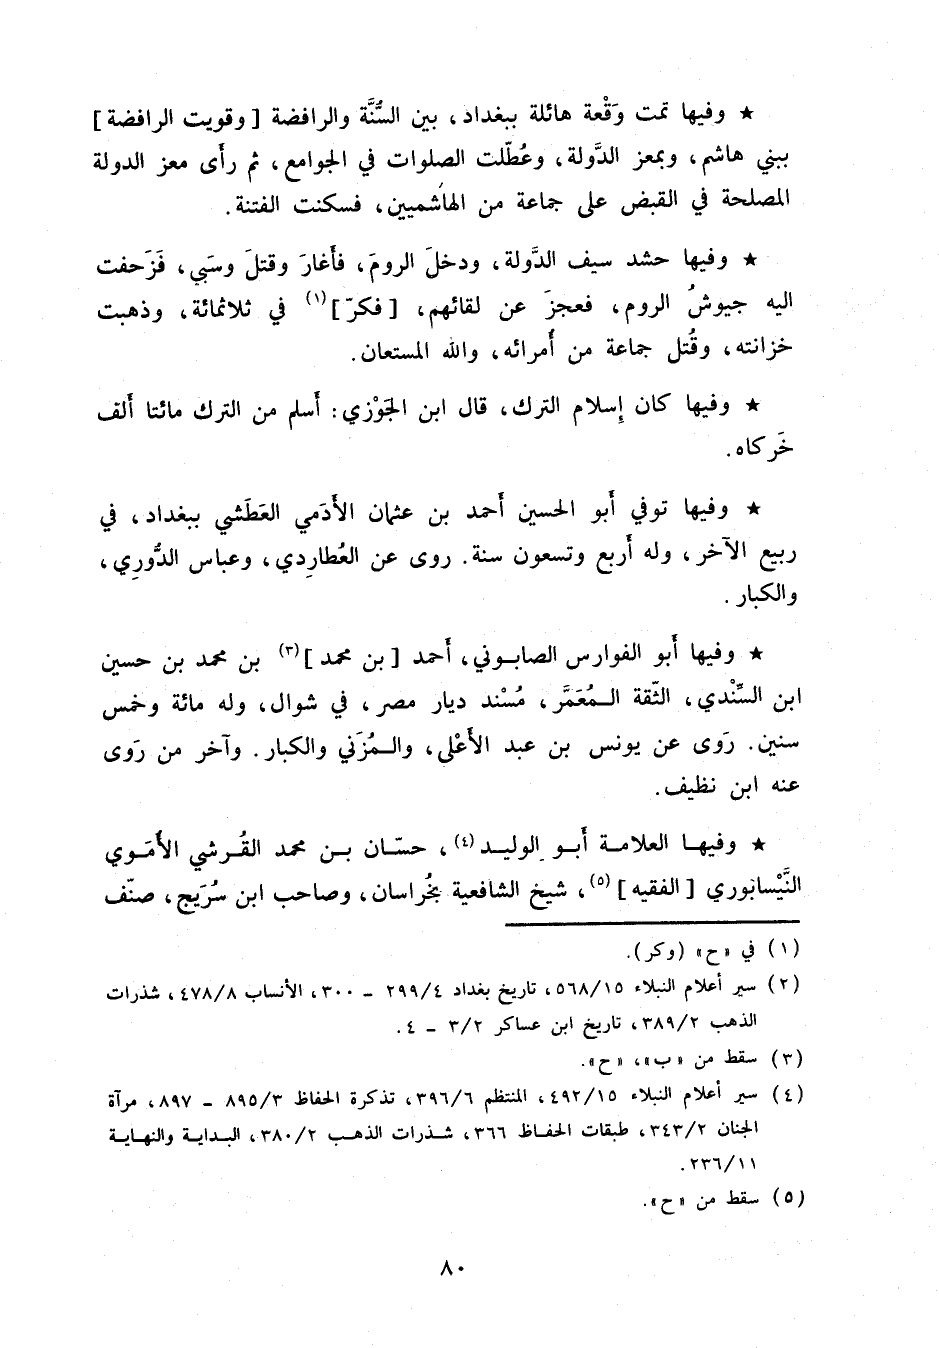 ★ وفيها تمت وَقْعة هائلة ببغداد، بين السُّنَّة والرافضة [ وقويت الرافضة ]
ببني هاشم، وبمعز الدَّولة، وعُطّلت الصلوات في الجوامع، ثم رأى معز الدولة
المصلحة في القبض على جماعة من الهاشميين، فسكنت الفتنة.
★ وفيها حشد سيف الدَّولة، ودخلَ الرومَ، فأَغارَ وقتلَ وسَبي، فَزَحفت
اليه جيوشُ الروم، فعجزَ عن لقائهم، [ فكرّ ](١) في ثلاثمائة، وذهبت
خزانته، وقُتل جماعة من أُمرائه، والله المستعان.
★ وفيها كان إسلام الترك، قال ابن الجَوْزي: أَسلم من الترك مائتا أَلف
خَركاه.
★ وفيها توفي أَبو الحسين أَحمد بن عثمان الأَدَمي العَطَشي ببغداد، في
ربيع الآخر، وله أَربع وتسعون سنة. روى عن العُطارِدي، وعباس الدُّورِي،
والكبار.
★ وفيها أَبو الفوارس الصابوني، أَحمد [ بن محمد ](٣) بن محمد بن حسين
ابن السِّنْدي، الثّقة المُعَمَّر، مُسْند ديار مصر، في شوال، وله مائة وخمس
سنين. رَوى عن يونس بن عبد الأَعْلى، والمُزَني والكبار. وآخر من رَوى
عنه ابن نظيف.
★ وفيها العلامة أَبو الوليد(٤)، حسّان بن محمد القُرشي الأَمَوي
النَّيْسابوري [ الفقيه ](٥)، شيخ الشافعية بخُراسان، وصاحب ابن سُرَيج، صنّف
(١) في «ح» (وكر).
(٢) سير أعلام النبلاء ٥٦٨/١٥، تاريخ بغداد ٢٩٩/٤ ــ ٣٠٠، الأنساب ٤٧٨/٨، شذرات
الذهب ٣٨٩/٢، تاريخ ابن عساكر ٣/٢ ــ ٤.
(٣) سقط من «ب»، «ح».
(٤) سير أعلام النبلاء ٤٩٢/١٥، المنتظم ٣٩٦/٦، تذكرة الحفاظ ٨٩٥/٣ ــ ٨٩٧، مرآة
الجنان ٣٤٣/٢، طبقات الحفاظ ٣٦٦، شذرات الذهب ٣٨٠/٢، البداية والنهاية
٢٣٦/١١.
(٥) سقط من «ح».
٨٠